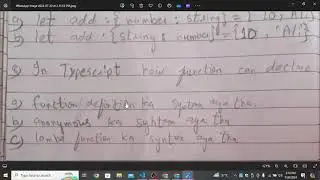 WhatsApp Image 2024-07-20 at 2.15.53 PM.jpeg
a) let add : { number : string } = { 10, "Ali"
b) let add : {string & number} = {10 , "Ali"}
Q In Typescript how function can declare
a) function definition ka syntax aya tha.
b) anonymous ka syntax aya tha
c) lamda function ka syntax aya tha
Type here to search